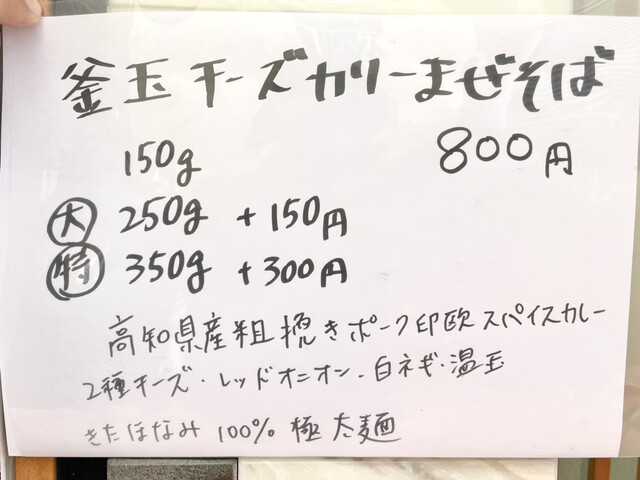 釜玉チーズカリーまぜそば
150g 800円
大 250g +150円
特 350g +300円
高知県産粗挽きポーク印欧スパイスカレー
2種チーズ・レッドオニオン・白ネギ・温玉
きたほなみ100% 極太麺